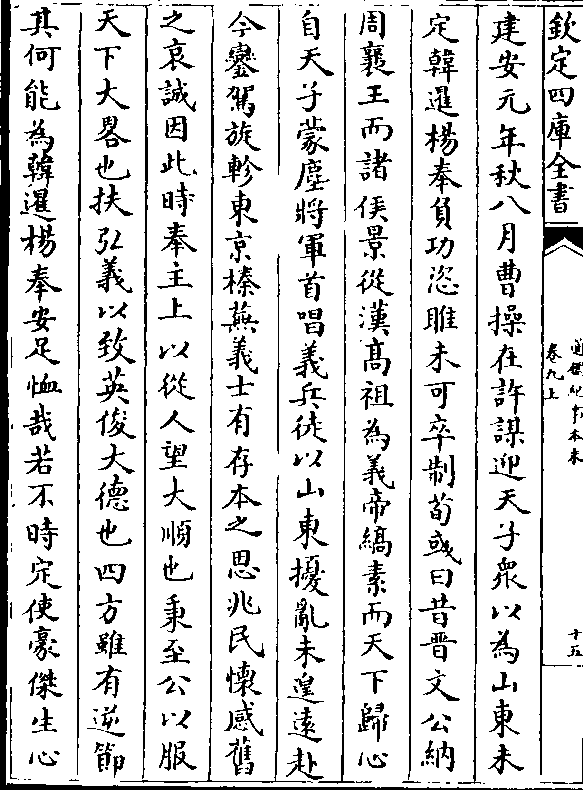 欽定四庫全書
通鑑紀事本末
卷九上
十五
建安元年秋八月曹操在許謀迎天子衆以為山東未
定韓暹楊奉負功恣睢未可卒制荀彧曰昔晋文公納
周襄王而諸侯景從漢高祖為義帝縞素而天下歸心
自天子蒙塵將軍首唱義兵徒以山東擾亂未遑遠赴
今鑾駕旋軫東京榛蕪義士有存本之思兆民懷感舊
之哀誠因此時奉主上以從人望大順也秉至公以服
天下大畧也扶弘義以致英俊大德也四方雖有逆節
其何能為韓暹楊奉安足恤哉若不時定使豪傑生心